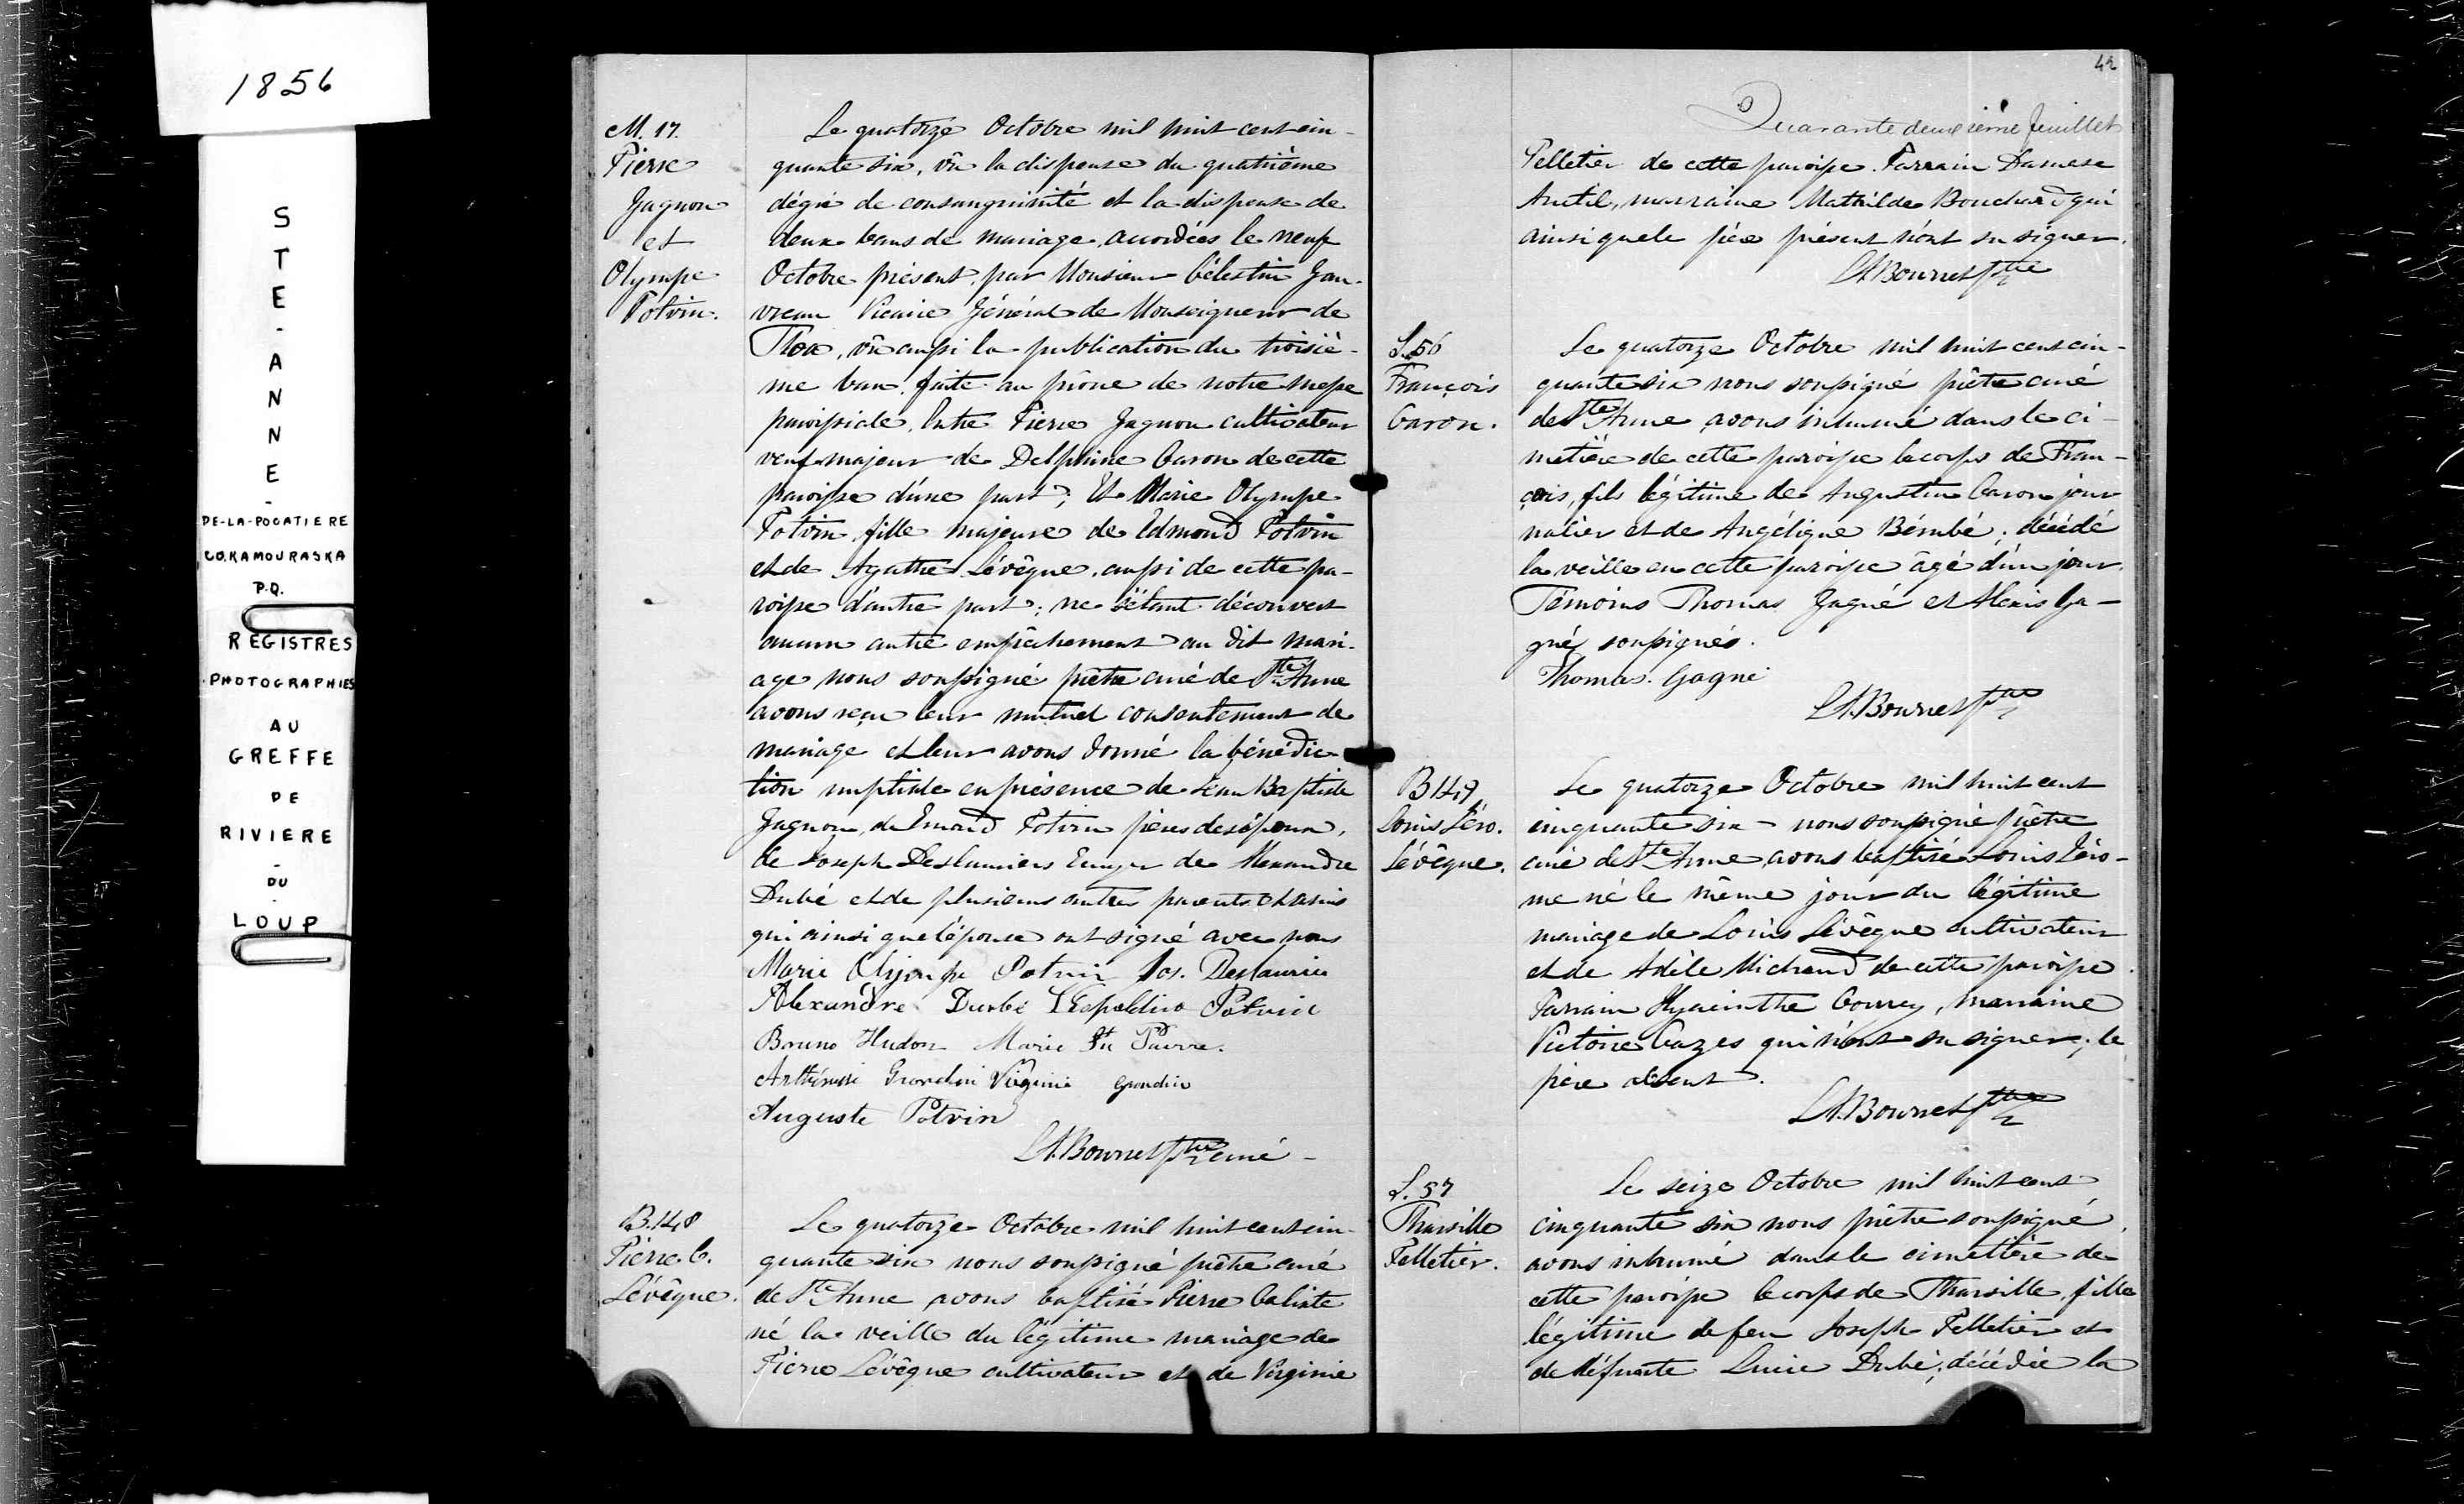 1856
STE-ANNE-
DE-LA-POCATIERE
CO.KAMOURASKA
P.Q.
REGISTRES
PHOTOGRAPHIES
AU
GREFFE
DE
RIVIERE
-
DU
-
LOUP
M. 17.
Pierre
Gagnon
et
Olympe
Potvin.
Le quatorze Octobre mil huit cent cin-
quante six, vû la dispense du quatrième
dégré de consanguinité et la dispense de
deux bans de mariage, accordées le neuf
Octobre présent, par Monsieur Célestin Gau-
vreau Vicaire Général de Monseigneur de
Tloa, vû aussi la publication du troisiè-
me ban faite au prône de notre messe
paroissiale, Entre Pierre Gagnon cultivateur
veuf majeur de Delphine Caron de cette
paroisse d'une part; Et Marie Olympe
Potvin fille majeure de Edmond Potvin
et de Agathe Lévêque, aussi de cette pa-
roisse d'autre part; ne s'étant découvert
aucun autre empêchement au dit mari-
age nous soussigné prêtre curé de Ste Anne
avons reçu leur mutuel consentement de
mariage et leur avons donné la bénédic-
tion nuptiale en présence de Jean Baptiste
Gagnon, de Emond Potvin pères des époux,
de Joseph Deslauriers Ecuyer de Alexandre
Dubé et de plusieurs autres parents et amis
qui ainsi que l'épouse ont signé avec nous
Marie Olympe Potvin Jos. Deslaurier
Alexandre Dubé Léopoldine Potvin
Bruno Hudon Marie St Pierre.
Arthémise Grondin Virginie Grondin
Auguste Potvin
Bournet Ptre curé -
B.148
Pierre C.
Lévêque.
Le quatorze Octobre mil huit cent cin-
quante six nous soussigné prêtre curé
de Ste Anne avons baptisé Pierre Calixte
né la veille du légitime mariage de
Pierre Lévêque cultivateur et de Virginie
42
Quarante deuxième feuillet
Pelletier de cette paroisse. Parrain Damase
Anctil, marraine Mathilde Bouchard qui
ainsi que le père présent n'ont su signer.
Bournet Ptre
S. 56
François
Caron.
Le quatorze Octobre mil huit cent cin-
quante six nous soussigné prêtre curé
de Ste Anne avons inhumé dans le ci-
metière de cette paroisse le corps de Fran-
çois, fils légitime de Augustin Caron jour
nalier et de Angélique Bérubé; décédé
la veille en cette paroisse âgé d'un jour.
Témoins Thomas Gagné et Alexis Ga-
gné soussignés.
Thomas. Gagné
Bournet Ptre
B149
Louis Jéro.
Lévêque.
Le quatorze Octobre mil huit cent
cinquante six - nous soussigné prêtre
curé de Ste Anne avons baptisé Louis Jéro-
me né le même jour du légitime
mariage de Louis Lévêque cultivateur
et de Adèle Michaud de cette paroisse.
Parrain Hyacinthe, marraine
Victoire Cazes qui n'ont su signer; le
père absent.
Bournet Ptre
S. 57
Tharsille
Pelletier.
Le seize Octobre mil huit cent
cinquante six nous prêtre soussigné,
avons inhumé dans le cimetière de
cette paroisse le corps de Tharsille, fille
légitime de feu Joseph Pelletier et
de défunte Lucie Dubé; décédée la